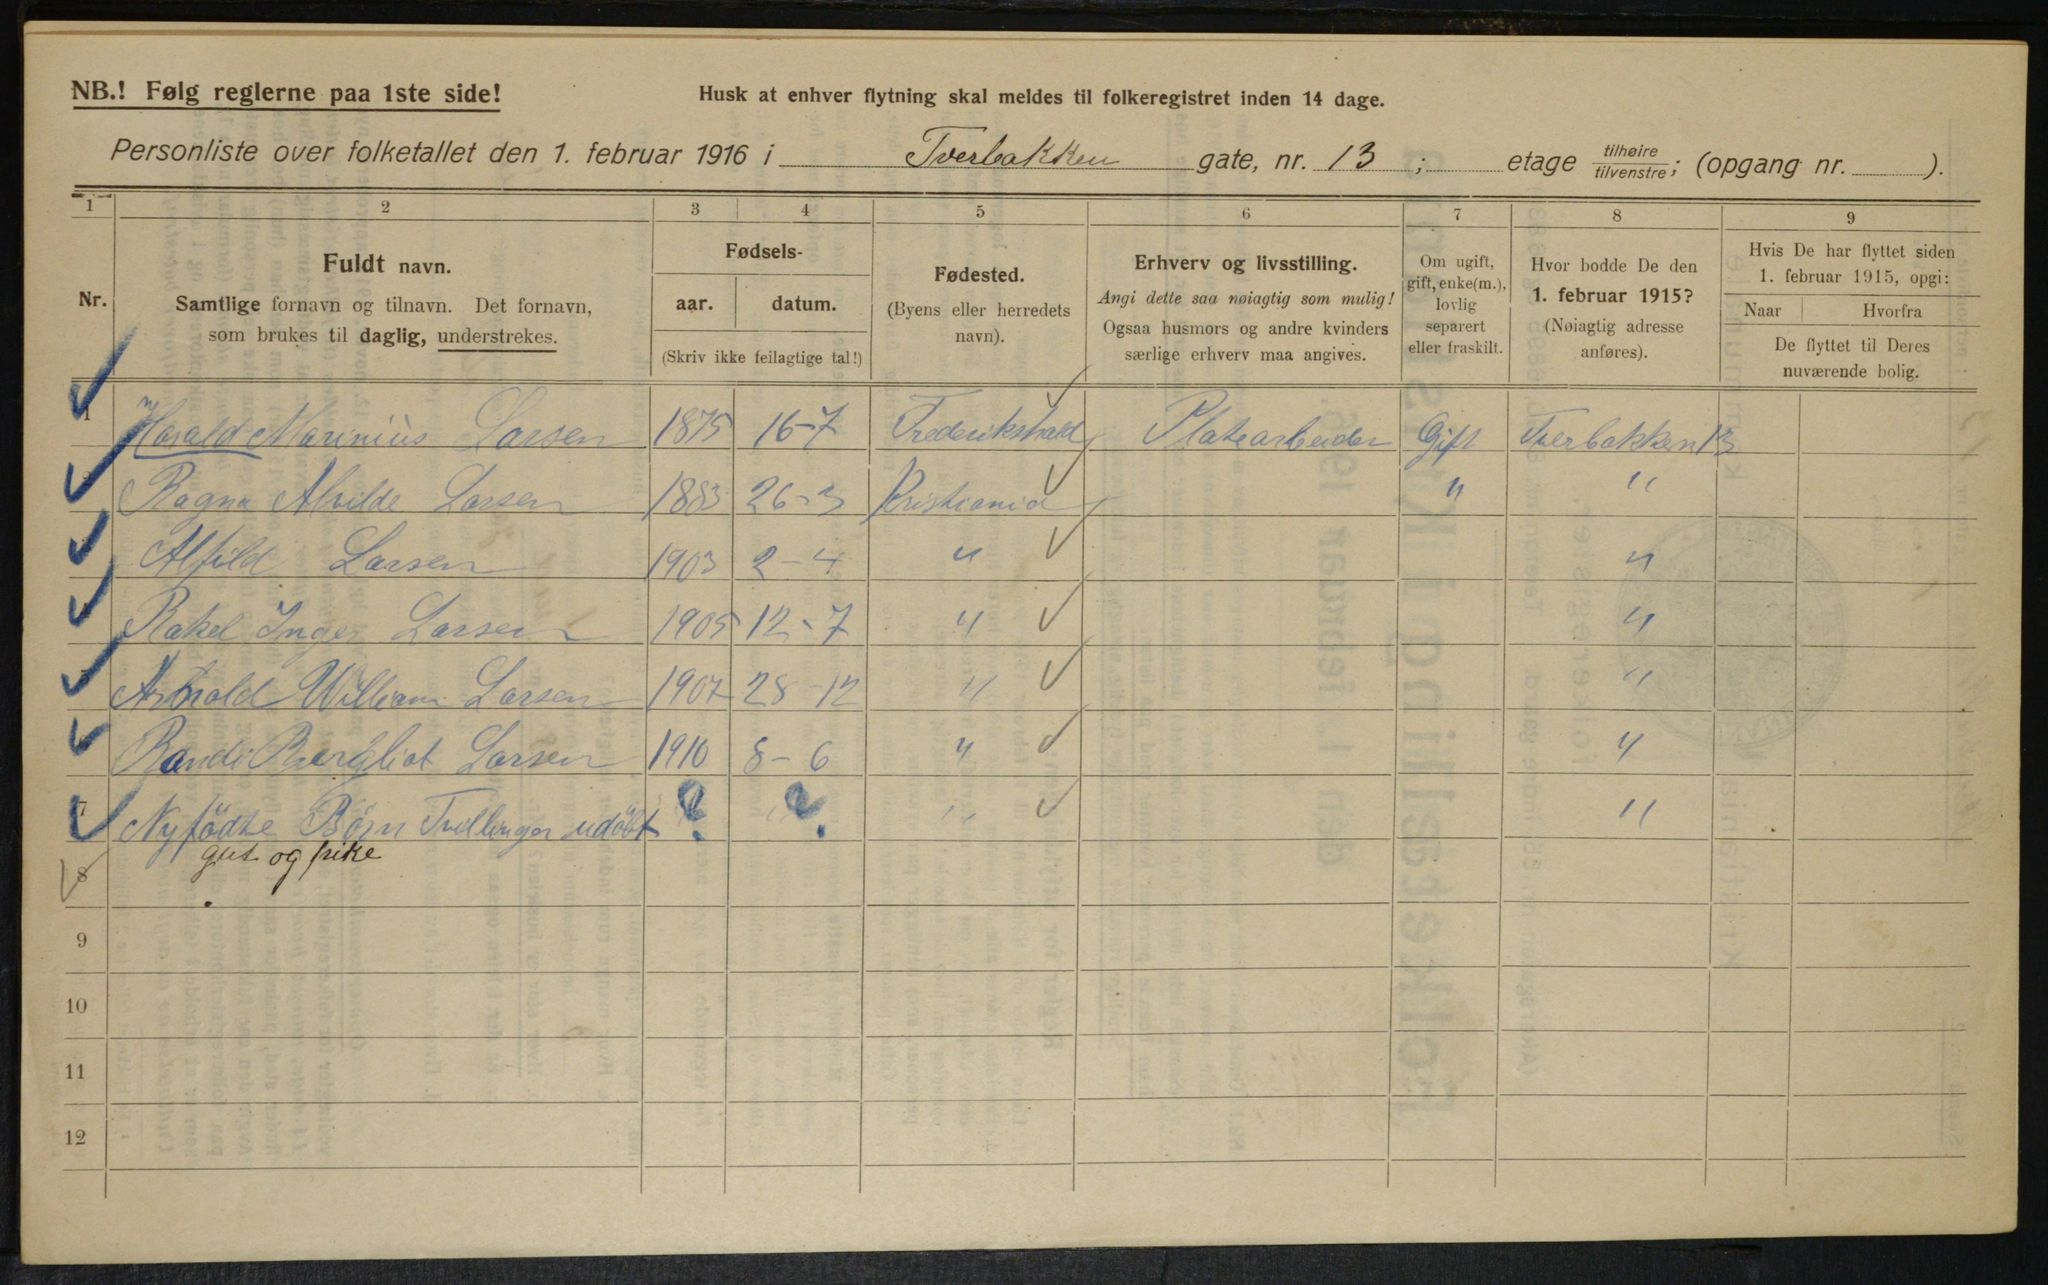 NB.! Følg reglerne paa 1ste side!
Husk at enhver flytning skal meldes til folkeregistret inden 14 dage.
Personliste over folketallet den 1. februar 1916 i Tverbakken gate, nr. 13 ; etage tilhøire tilvenstre; (opgang nr. ).
1 2 3 4 5 6 7 8 9
Nr.
Fuldt navn.
Samtlige fornavn og tilnavn. Det fornavn,
som brukes til daglig, understrekes.
Fødsels-
aar. datum.
(Skriv ikke feilagtige tal!)
Fødested.
(Byens eller herredets
navn).
Erhverv og livsstilling.
Angi dette saa nøiagtig som mulig!
Ogsaa husmors og andre kvinders
særlige erhverv maa angives.
Om ugift,
gift, enke(m.),
lovlig
separert
eller fraskilt.
Hvor bodde De den
1. februar 1915?
(Nøiagtig adresse
anføres).
Hvis De har flyttet siden
1. februar 1915, opgi:
Naar Hvorfra
De flyttet til Deres
nuværende bolig.
1 Harald Marinius Larsen 1875 16-7 Frederikshald Platearbeider Gift Tverbakken 13
Ragna Alvilde Larsen 1883 26-3 Kristiania " "
Alfild Larsen 1903 2-4 " "
Rakel Inger Larsen 1905 12-7 " "
Arnold William Larsen 1907 28-12 " "
Randi Bergliot Larsen 1910 8-6 " "
7 Nyfödte Börn Tvillinger udöbt ? ? " "
gut og pike
8
9
10
11
12